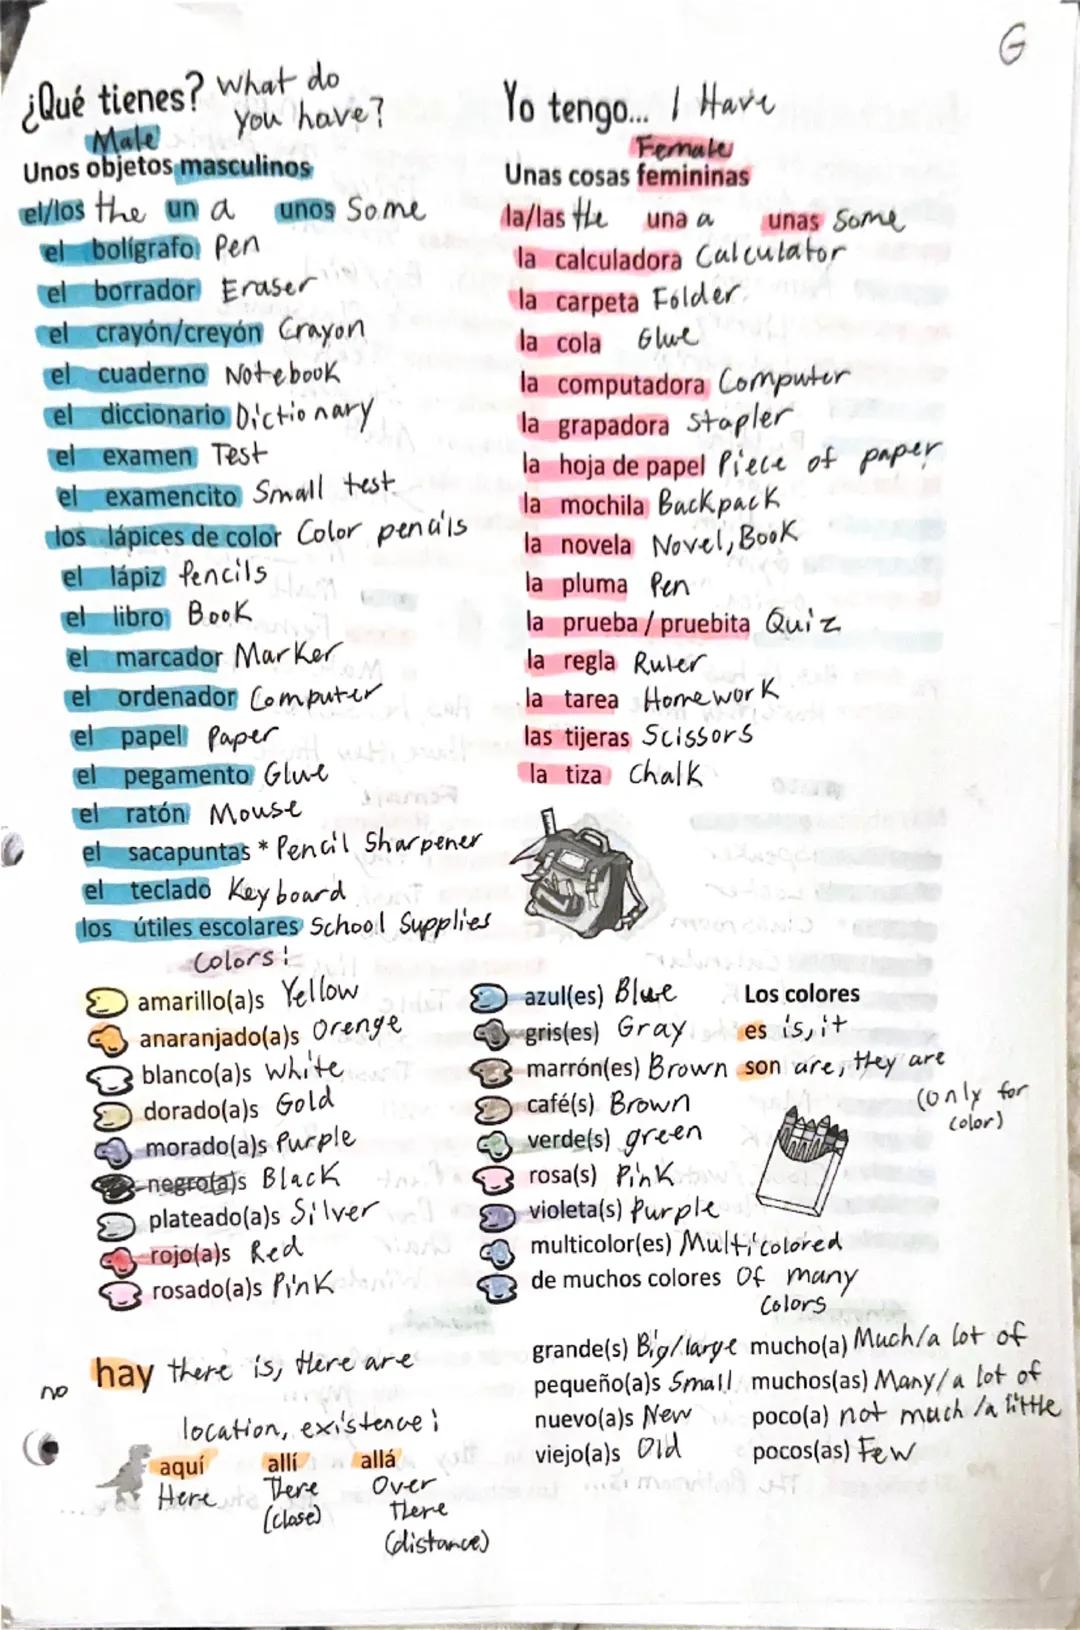 G
¿Qué tienes? What do you have?
Yo tengo... I Have
Male
Unos objetos masculinos
el/los the un a unos Some
el bolígrafo Pen
el borrador Eraser
el crayón/creyón Crayon
el cuaderno Notebook
el diccionario Dictionary
el examen Test
el examencito Small test
los lápices de color Color pencils
el lápiz Pencils
el libro Book
el marcador Marker
el ordenador Computer
el papel Paper
el pegamento Glue
el ratón Mouse
el sacapuntas * Pencil Sharpener
el teclado Keyboard
los útiles escolares School Supplies
Female
Unas cosas femininas
la/las the una a unas Some
la calculadora Calculator
la carpeta Folder
la cola Glue
la computadora Computer
la grapadora Stapler
la hoja de papel Piece of paper
la mochila Backpack
la novela Novel, Book
la pluma Pen
la prueba / pruebita Quiz
la regla Ruler
la tarea Homework
las tijeras Scissors
la tiza Chalk
Colors:
amarillo(a)s Yellow
anaranjado(a)s Orenge
blanco(a)s White
dorado(a)s Gold
morado(a)s Purple
negro(a)s Black
plateado(a)s Silver
rojo(a)s Red
rosado(a)s Pink
azul(es) Blue
gris(es) Gray
marrón(es) Brown
café(s) Brown
verde(s) green
rosa(s) Pink
violeta(s) Purple
multicolor(es) Multicolored
de muchos colores Of many
Colors
Los colores
es is, it
son are, they are
(only for
color)
no
hay there is, there are
location, existence:
aquí allí allá
Here There Over
(close) There
(distance)
grande(s) Big/large mucho(a) Much/a lot of
pequeño(a)s Small muchos(as) Many/a lot of
nuevo(a)s New poco(a) not much /a little
viejo(a)s Old pocos(as) Few